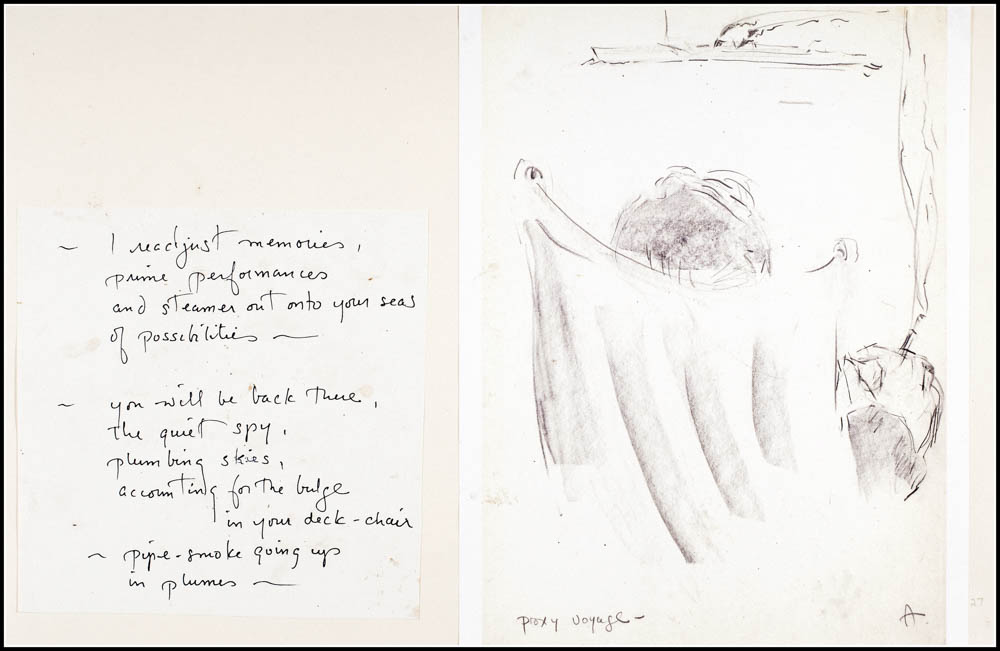 ~ I readjust memories,
prime performances
and steamer out onto your seas
of possibilities ~
~ you will be back there,
the quiet spy,
plumbing skies,
accounting for the bulge
in your deck-chair
~ pipe-smoke going up
in plumes ~
proxy voyage -
A.
27